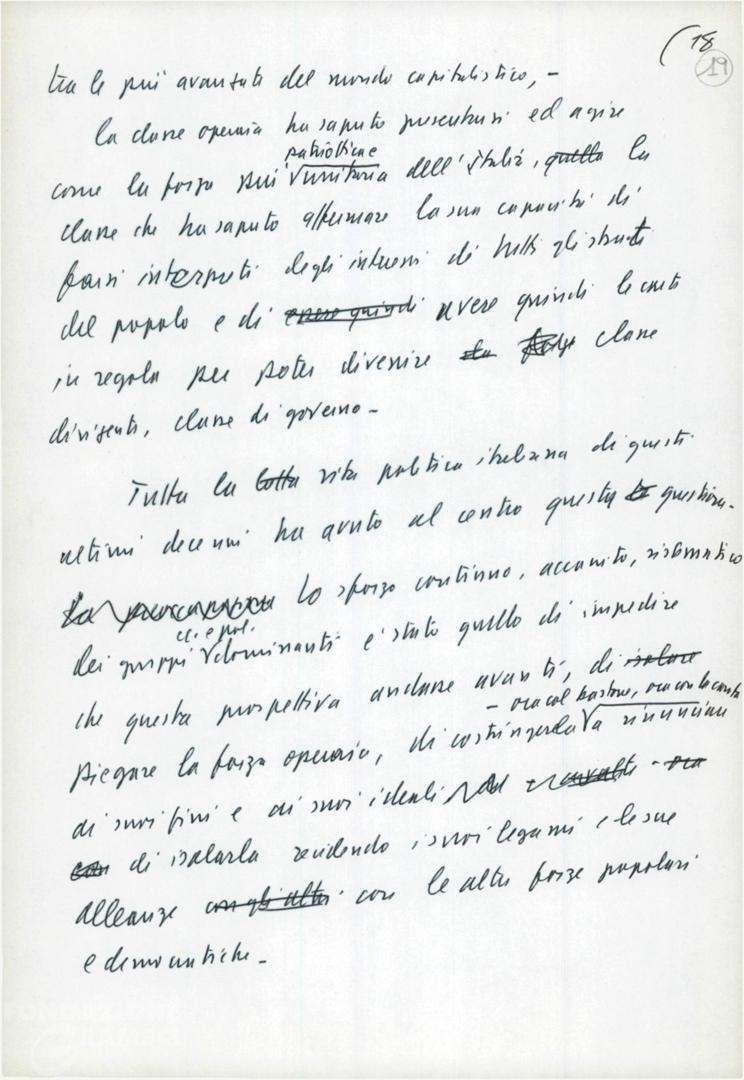 (18
19
tra le più avanzate del mondo capitalistico, –
la classe operaia ha saputo presentarsi ed agire
patriottica e
come la forza più unitaria dell'Italia, quella la
classe che ha saputo affermare la sua capacità di
farsi interprete degli interessi di tutti gli strati
del popolo e di avere quindi avere quindi le carte
in regola per poter divenire la classe
dirigente, classe di governo –
Tutta la lotta vita politica italiana di questi
ultimi decenni ha avuto al centro questa questione.
Lo sforzo continuo, accanito, sistematico
ec. e pol.
dei gruppi dominanti è stato quello di impedire
che questa prospettiva andasse avanti, di isolare
– ora col bastone, ora con la carota
piegare la forza operaia, di costringerla a rinunciare
ai suoi fini e ai suoi ideali ora
con di isolarla recidendo i suoi legami e le sue
alleanze con gli altri con le altre forze popolari
e democratiche –
FONDAZIONE
GRAMSCI